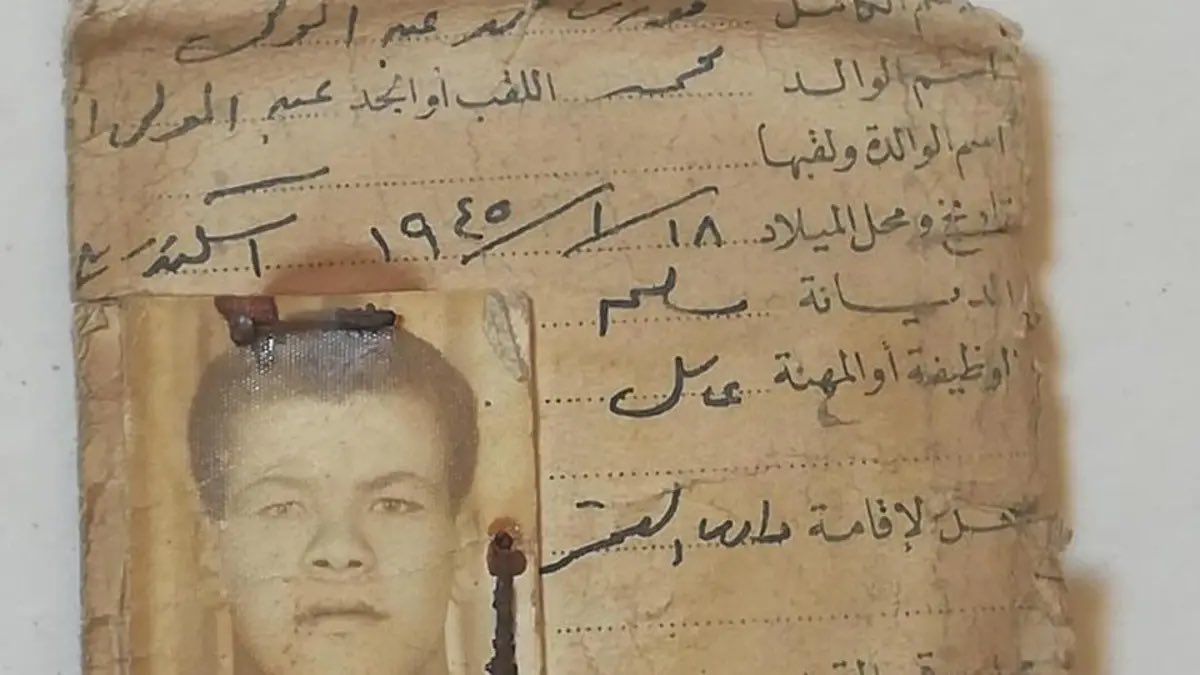 الكامل محمد عبد المولى
اسم الوالد محمد اللقب أو الجد عبد المولى
اسم الوالدة ولقبها
تاريخ ومحل الميلاد ١٨ / ١ / ١٩٤٥ اسكندرية
الديانة مسلم
الوظيفة أو المهنة عامل
محل الإقامة